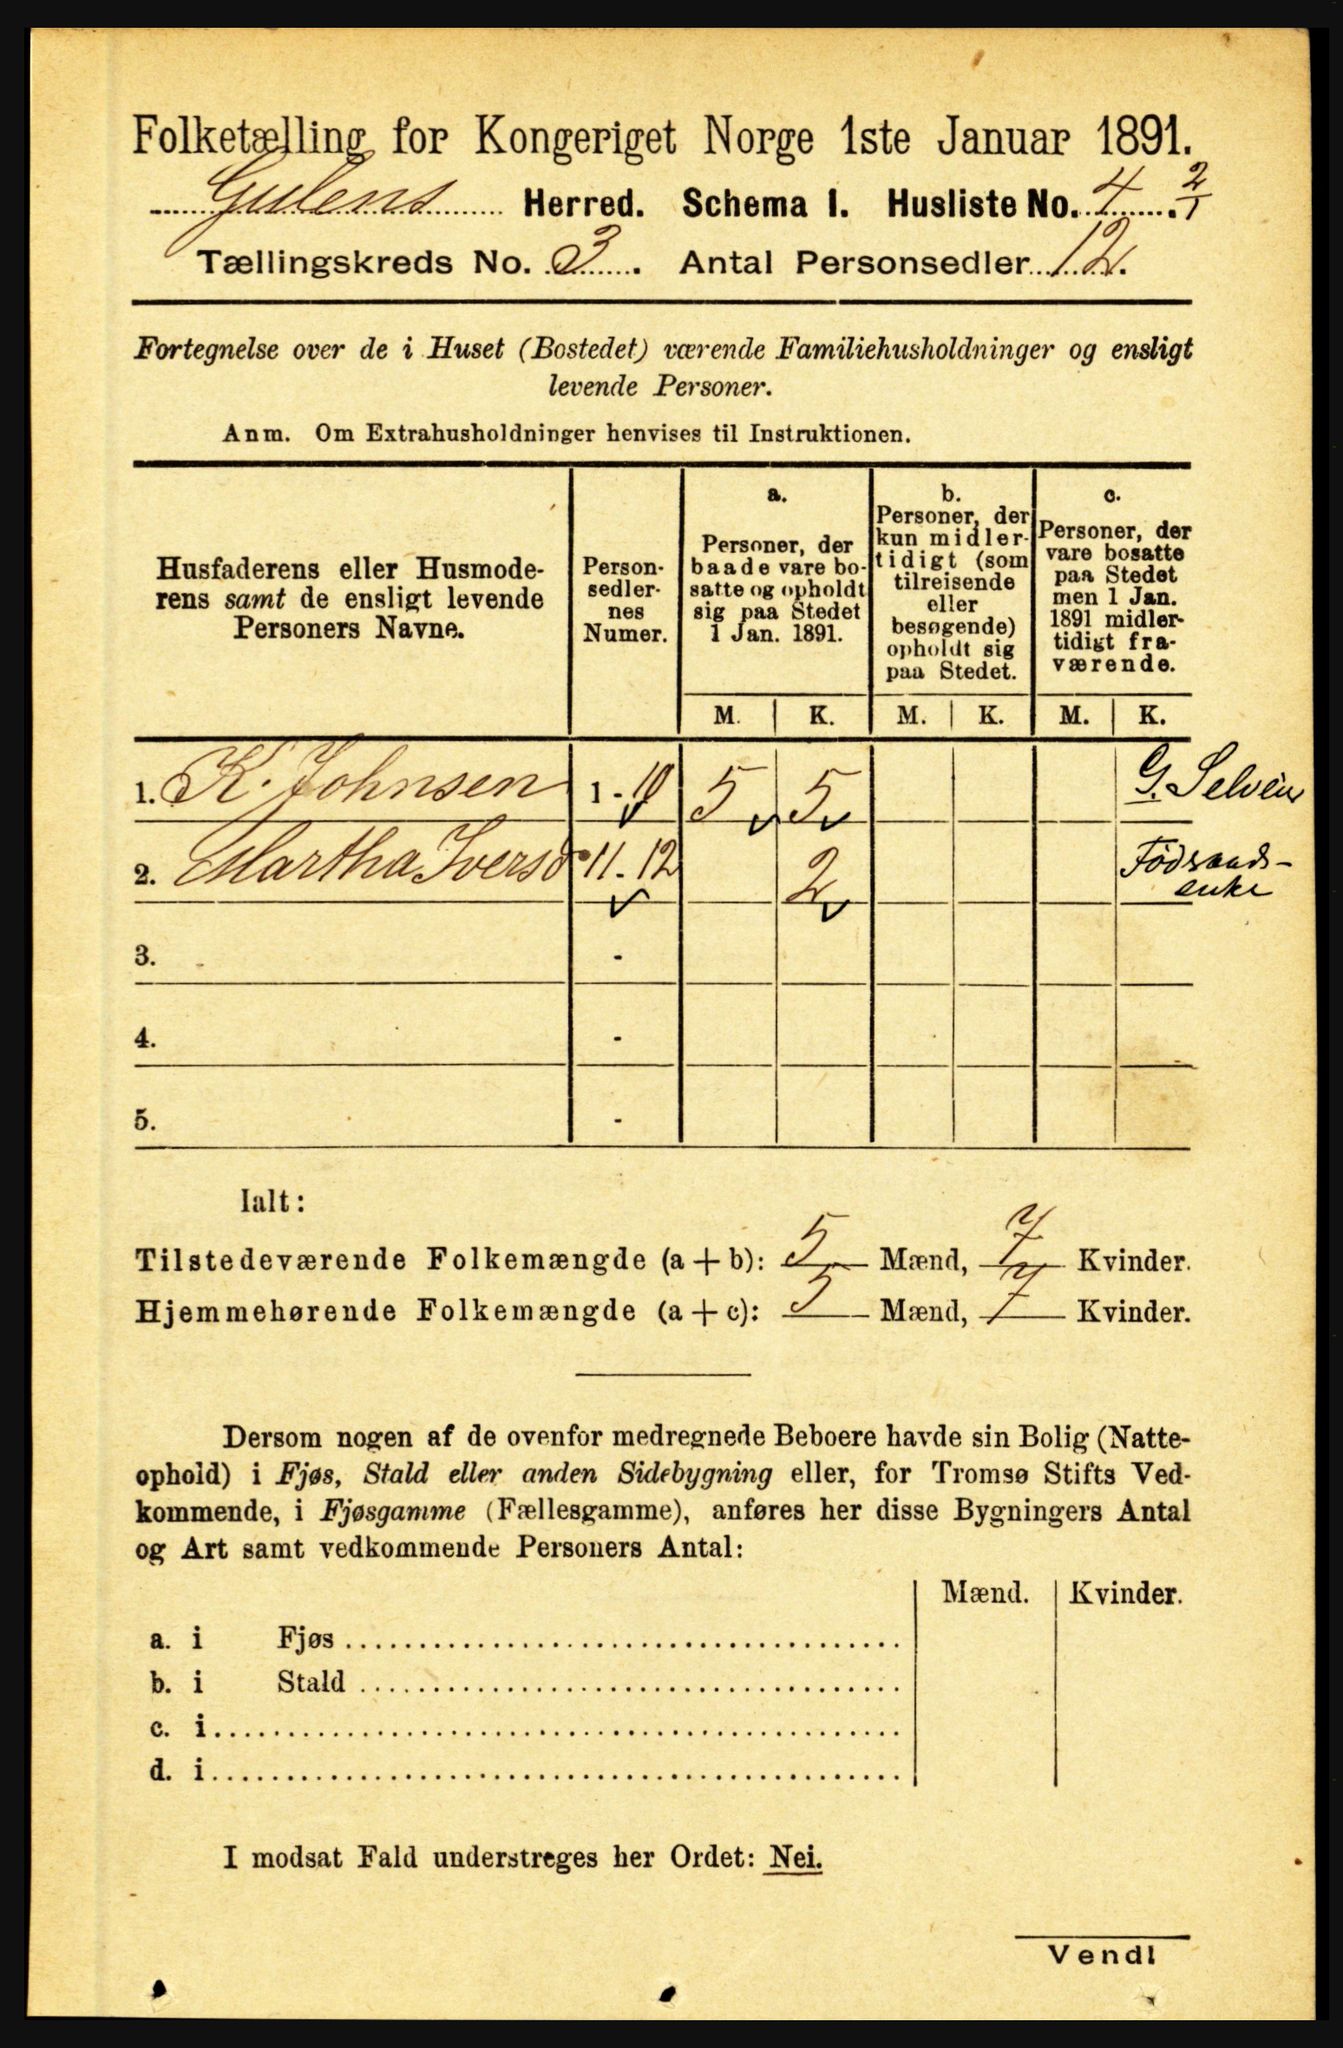 Folketælling for Kongeriget Norge 1ste Januar 1891.
Gulens Herred. Schema I. Husliste No. 4. 2/1
Tællingskreds No. 3. Antal Personsedler 12.
Fortegnelse over de i Huset (Bostedet) værende Familiehusholdninger og ensligt
levende Personer.
Anm. Om Extrahusholdninger henvises til Instruktionen.
Husfaderens eller Husmode-
rens samt de ensligt levende
Personers Navne.
Person-
sedler-
nes
Numer.
a.
Personer, der
baade vare bo-
satte og opholdt
sig paa Stedet
1 Jan. 1891.
b.
Personer, der
kun midler-
tidigt (som
tilreisende
eller
besøgende)
opholdt sig
paa Stedet.
c.
Personer, der
vare bosatte
paa Stedet
men 1 Jan.
1891 midler-
tidigt fra-
værende.
M. K. M. K. M. K.
1. K. Johnsen 1 - 10 5 5 G.
2. Martha Iversd 11 - 12 2
enke
3. -
4. -
5. -
Ialt:
Tilstedeværende Folkemængde (a + b): 5 Mænd, 7 Kvinder.
Hjemmehørende Folkemængde (a + c): 5 Mænd, 7 Kvinder.
Dersom nogen af de ovenfor medregnede Beboere havde sin Bolig (Natte-
ophold) i Fjøs, Stald eller anden Sidebygning eller, for Tromsø Stifts Ved-
kommende, i Fjøsgamme (Fællesgamme), anføres her disse Bygningers Antal
og Art samt vedkommende Personers Antal:
Mænd. Kvinder.
a. i Fjøs
b. i Stald
c. i
d. i
I modsat Fald understreges her Ordet: Nei.
Vend!